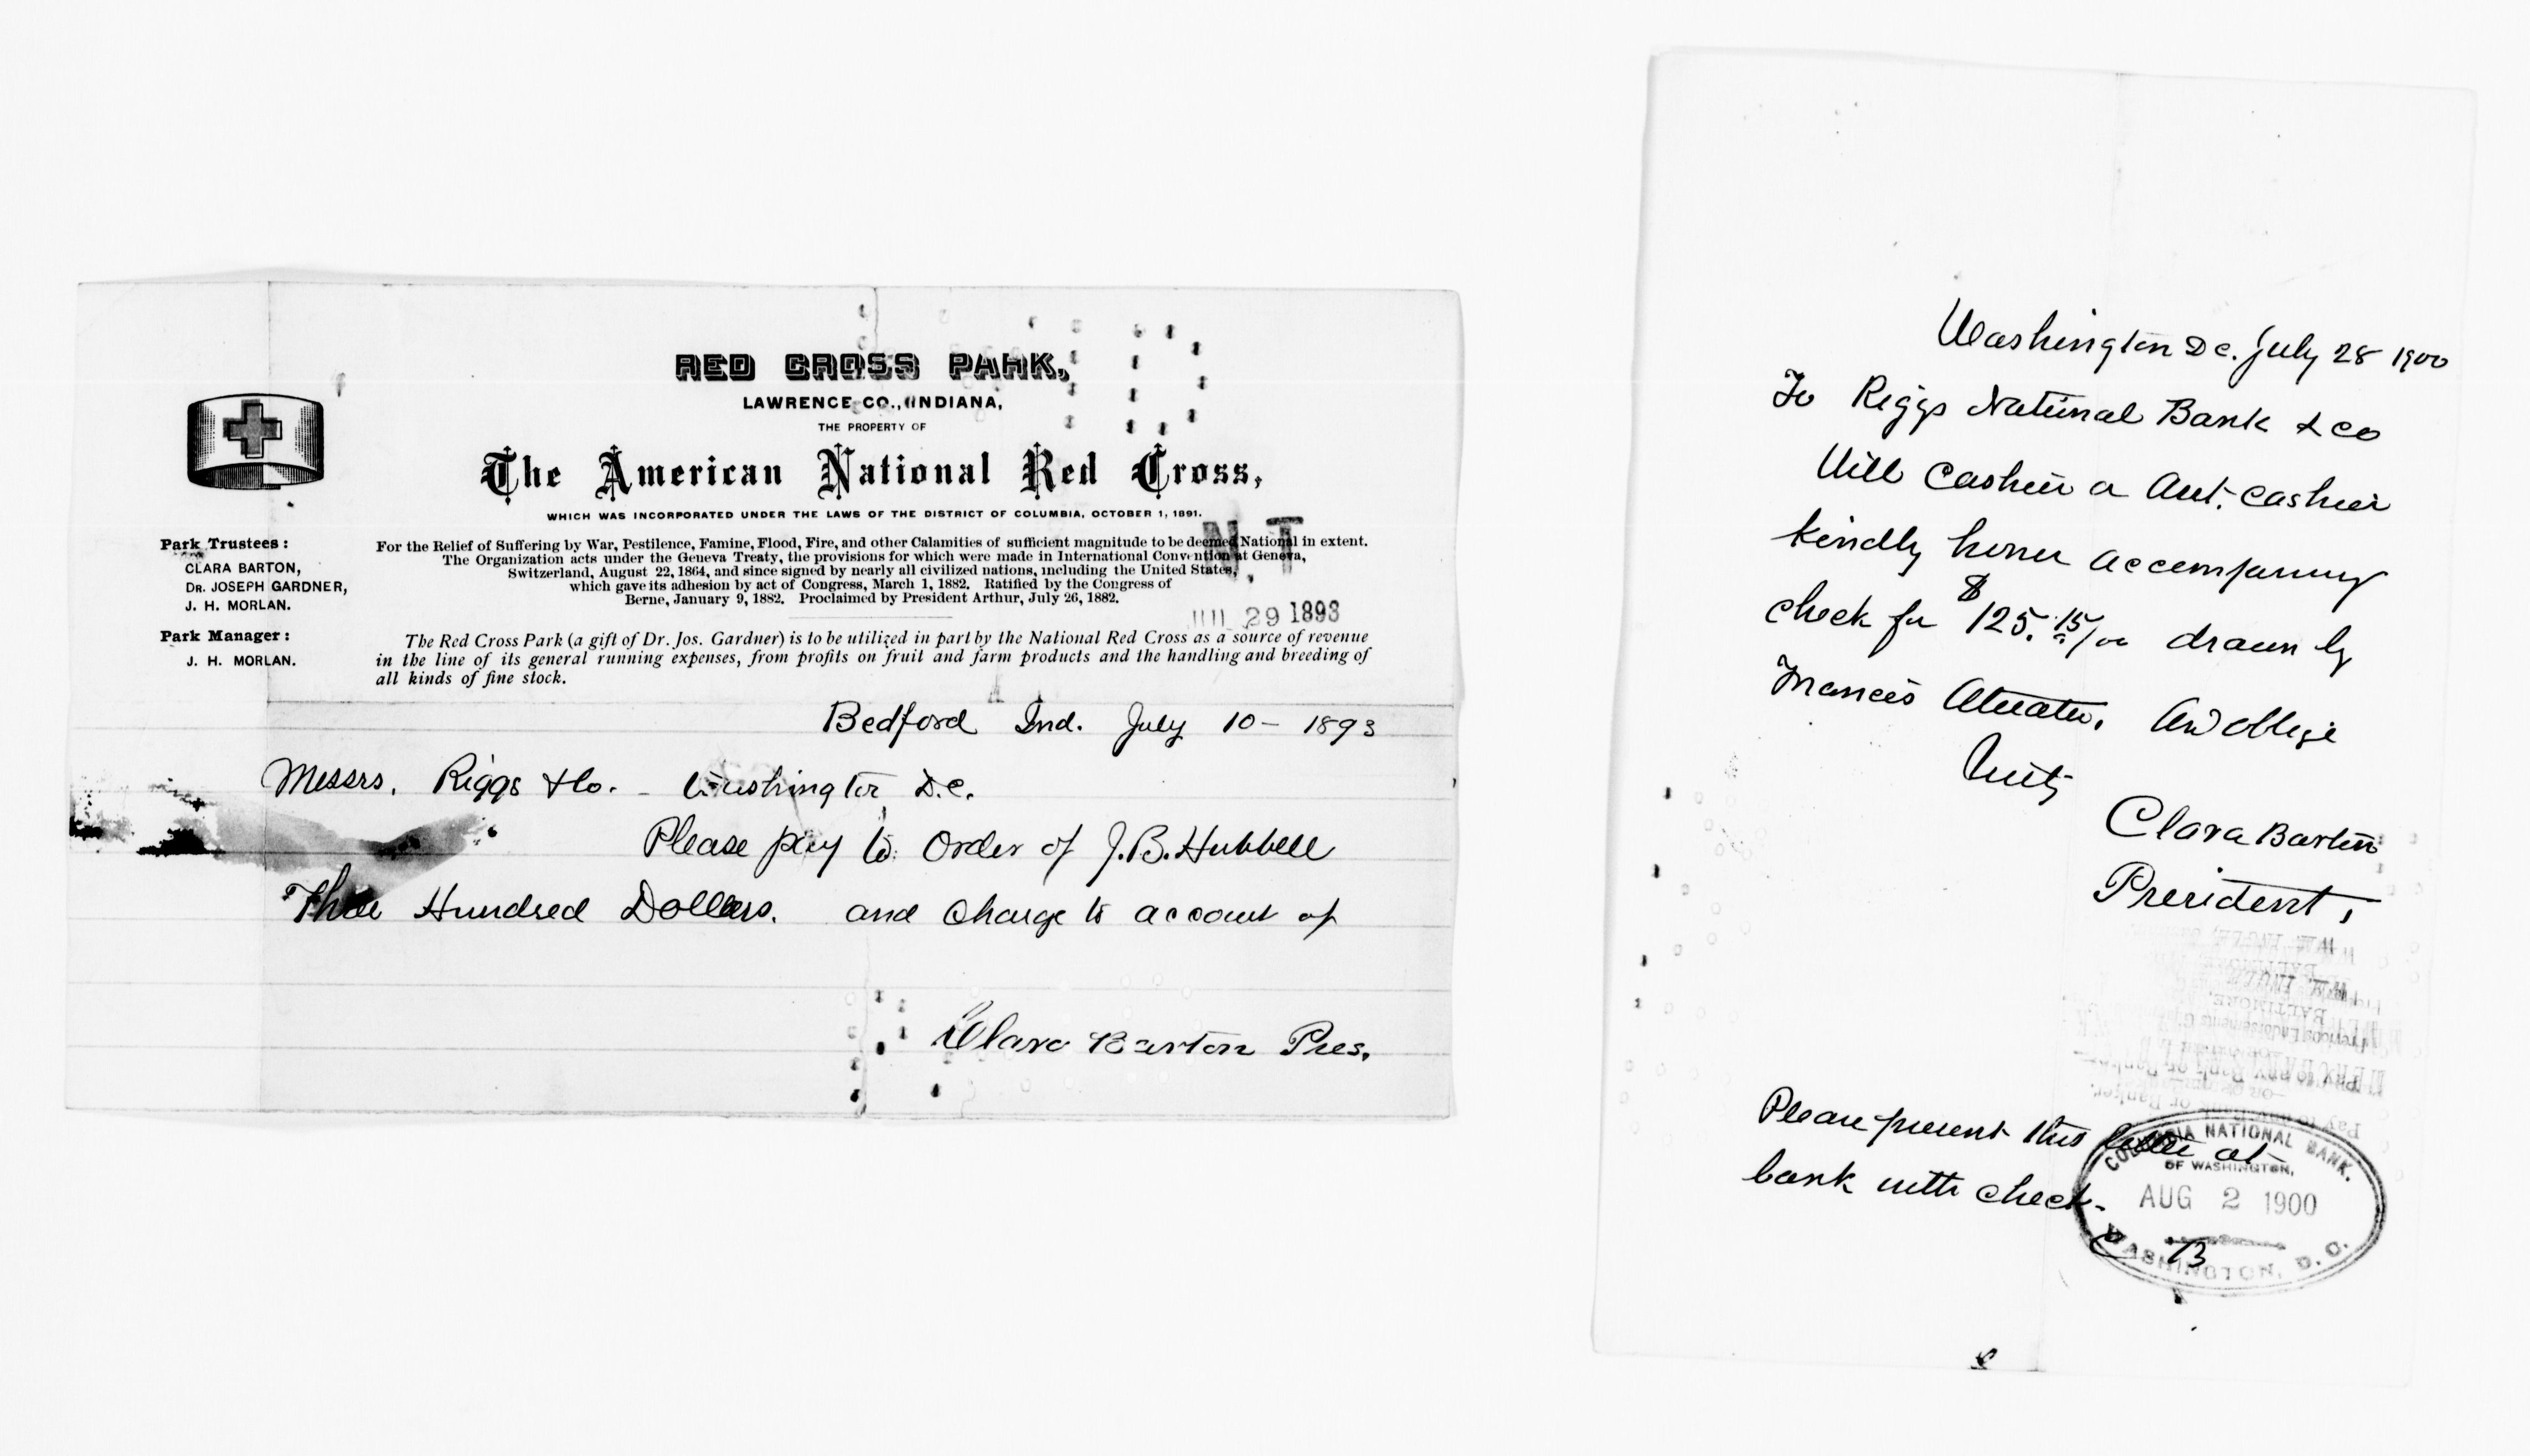 RED CROSS PARK,
LAWRENCE CO., INDIANA,
THE PROPERTY OF
The American National Red Cross,
WHICH WAS INCORPORATED UNDER THE LAWS OF THE DISTRICT OF COLUMBIA, OCTOBER 1, 1891.
For the Relief of Suffering by War, Pestilence, Famine, Flood, Fire, and other Calamities of sufficient magnitude to be deemed National in extent.
The Organization acts under the Geneva Treaty, the provisions for which were made in International Convention at Geneva,
Switzerland, August 22, 1864, and since signed by nearly all civilized nations, including the United States,
which gave its adhesion by act of Congress, March 1, 1882. Ratified by the Congress of
Berne, January 9, 1882. Proclaimed by President Arthur, July 26, 1882.
Park Trustees:
CLARA BARTON,
DR. JOSEPH GARDNER,
J. H. MORLAN.
Park Manager:
J. H. MORLAN.
N T
JUL 29 1893
The Red Cross Park (a gift of Dr. Jos. Gardner) is to be utilized in part by the National Red Cross as a source of revenue
in the line of its general running expenses, from profits on fruit and farm products and the handling and breeding of
all kinds of fine stock.
Bedford Ind. July 10 - 1893
Messrs. Riggs & Co. - Washington D.C.
Please pay to order of J. B. Hubbell
Three Hundred Dollars. and charge to account of
Clara Barton Pres.
Washington D C. July 28 1900
To Riggs National Bank & Co
Will Cashier or Asst. cashier
kindly honor accompanying
check for $125. 15/100 drawn by
Francis Atwater, and oblige
Clara Barton
President,
Please present this letter at
bank with check.
B
COLUMBIA NATIONAL BANK.
OF WASHINGTON,
AUG 2 1900
WASHINGTON, D. C.